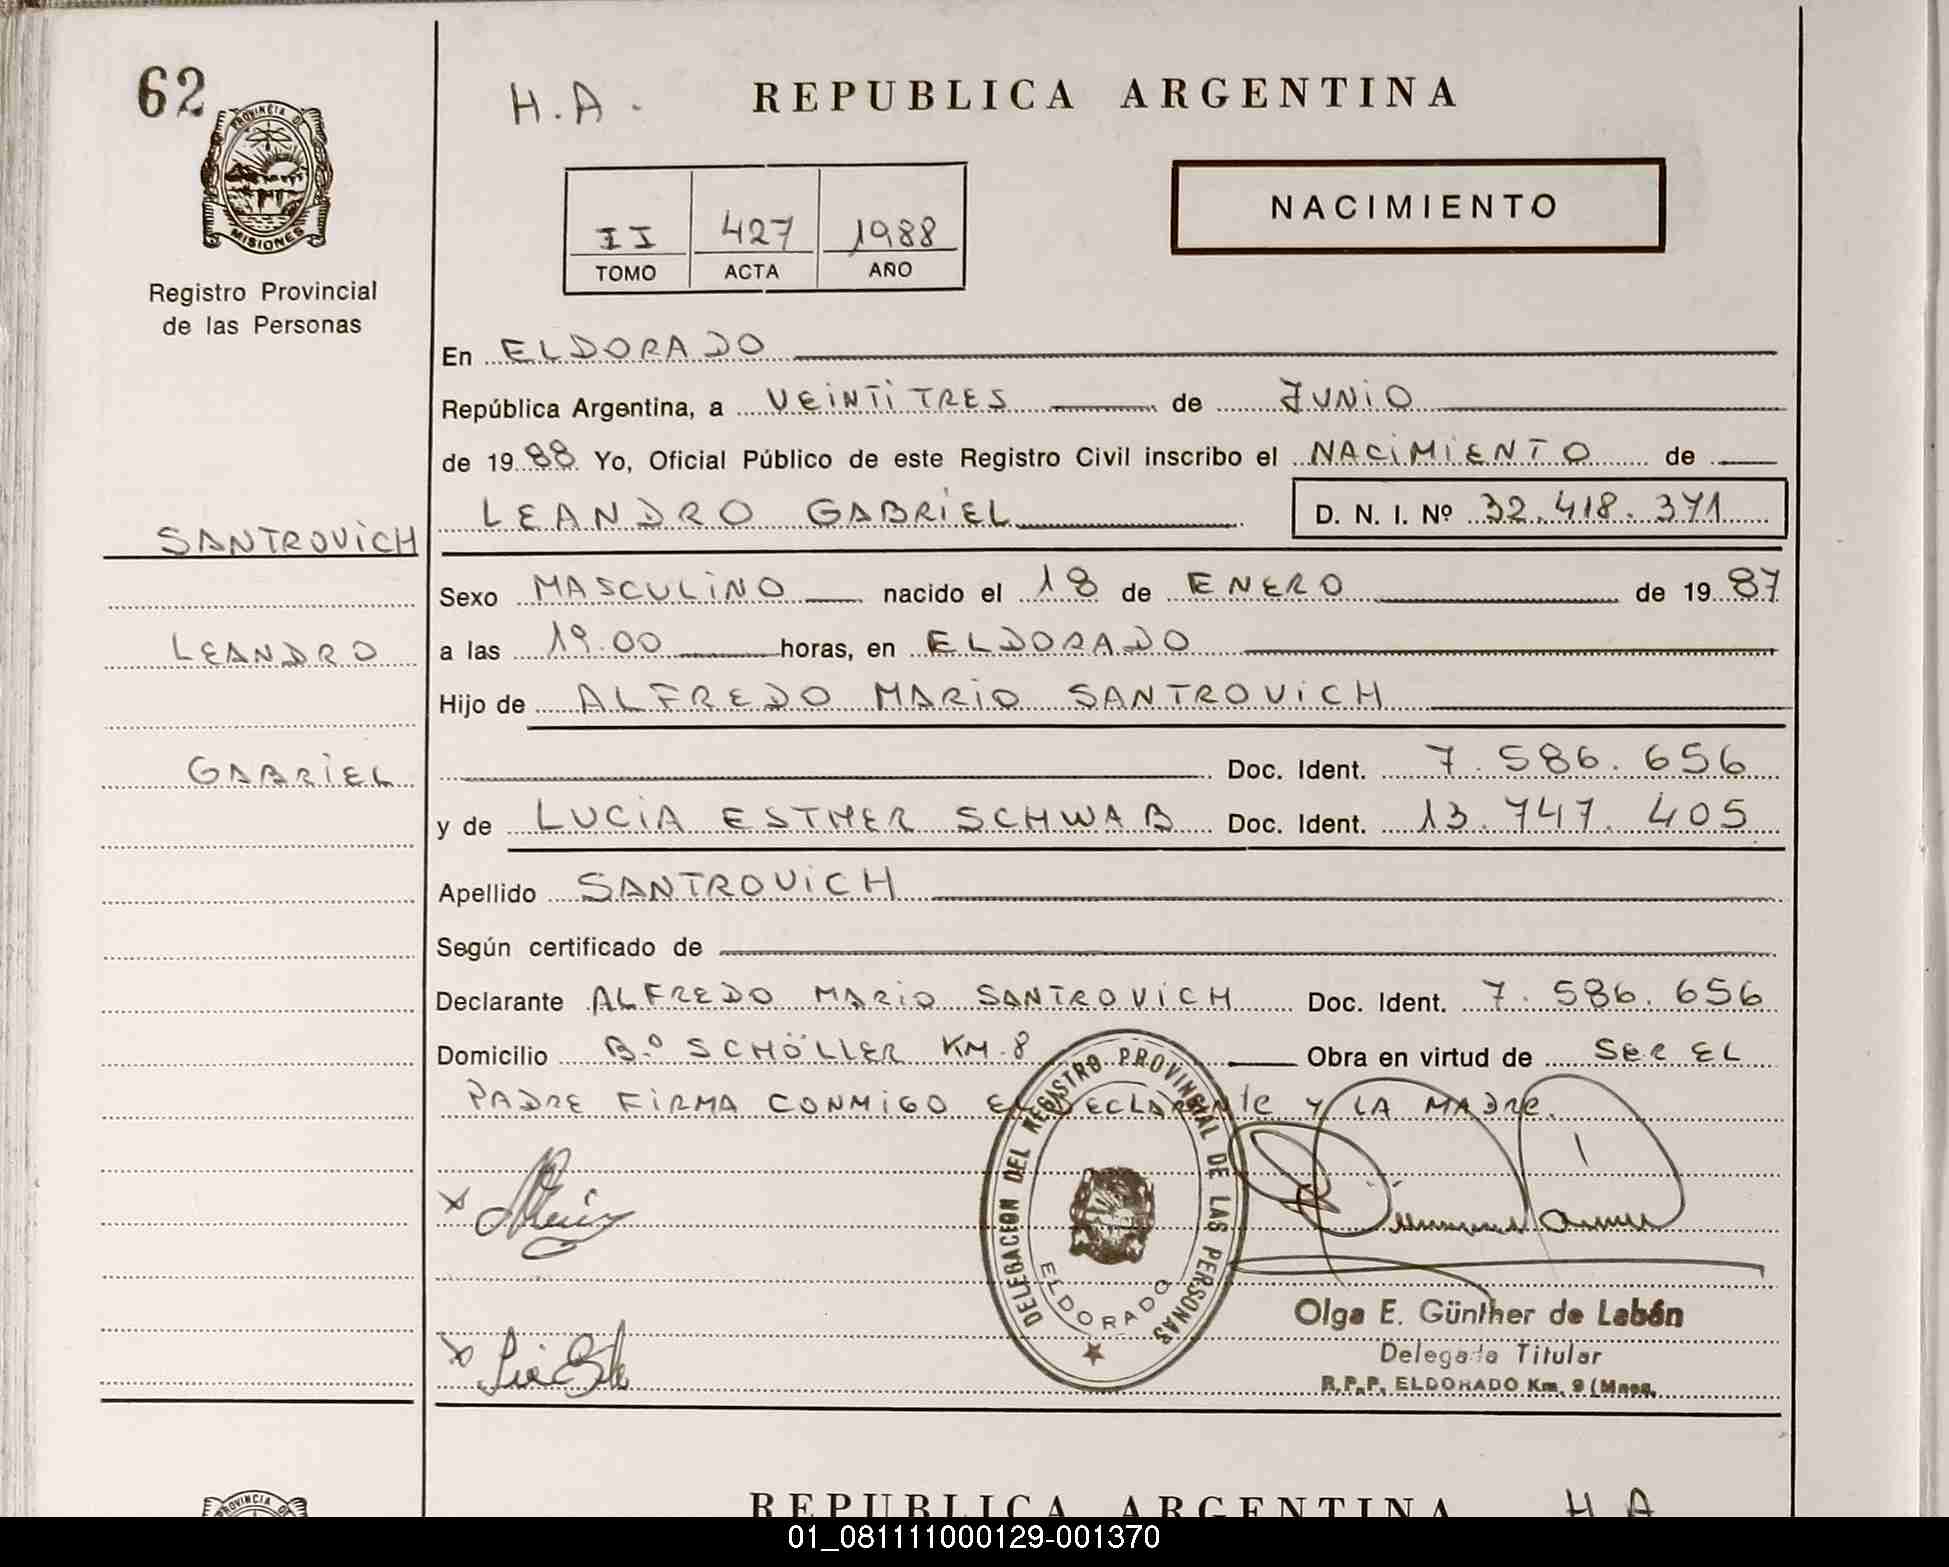 62
H.A.
REPUBLICA ARGENTINA
PROVINCIA DE
MISIONES
Registro Provincial
de las Personas
II 427 1988
TOMO ACTA AÑO
NACIMIENTO
En ELDORADO
República Argentina, a VEINTITRES de JUNIO
de 1988 Yo, Oficial Público de este Registro Civil inscribo el NACIMIENTO de
LEANDRO GABRIEL D. N. I. Nº 32.418.371
SANTROVICH
LEANDRO
GABRIEL
Sexo MASCULINO nacido el 18 de ENERO de 1987
a las 19.00 horas, en ELDORADO
Hijo de ALFREDO MARIO SANTROVICH
Doc. Ident. 7.586.656
y de LUCIA ESTHER SCHWAB Doc. Ident. 13.747.405
Apellido SANTROVICH
Según certificado de
Declarante ALFREDO MARIO SANTROVICH Doc. Ident. 7.586.656
Domicilio Bº SCHÖLLER KM.8 Obra en virtud de SER EL
PADRE FIRMA CONMIGO EL DECLARANTE Y LA MADRE.
DELEGACION DEL REGISTRO PROVINCIAL DE LAS PERSONAS
ELDORADO
Olga E. Günther de Labán
Delegada Titular
R.P.P. ELDORADO Km. 9 (Mnes.
PROVINCIA DE
REPUBLICA ARGENTINA H A
01_081111000129-001370